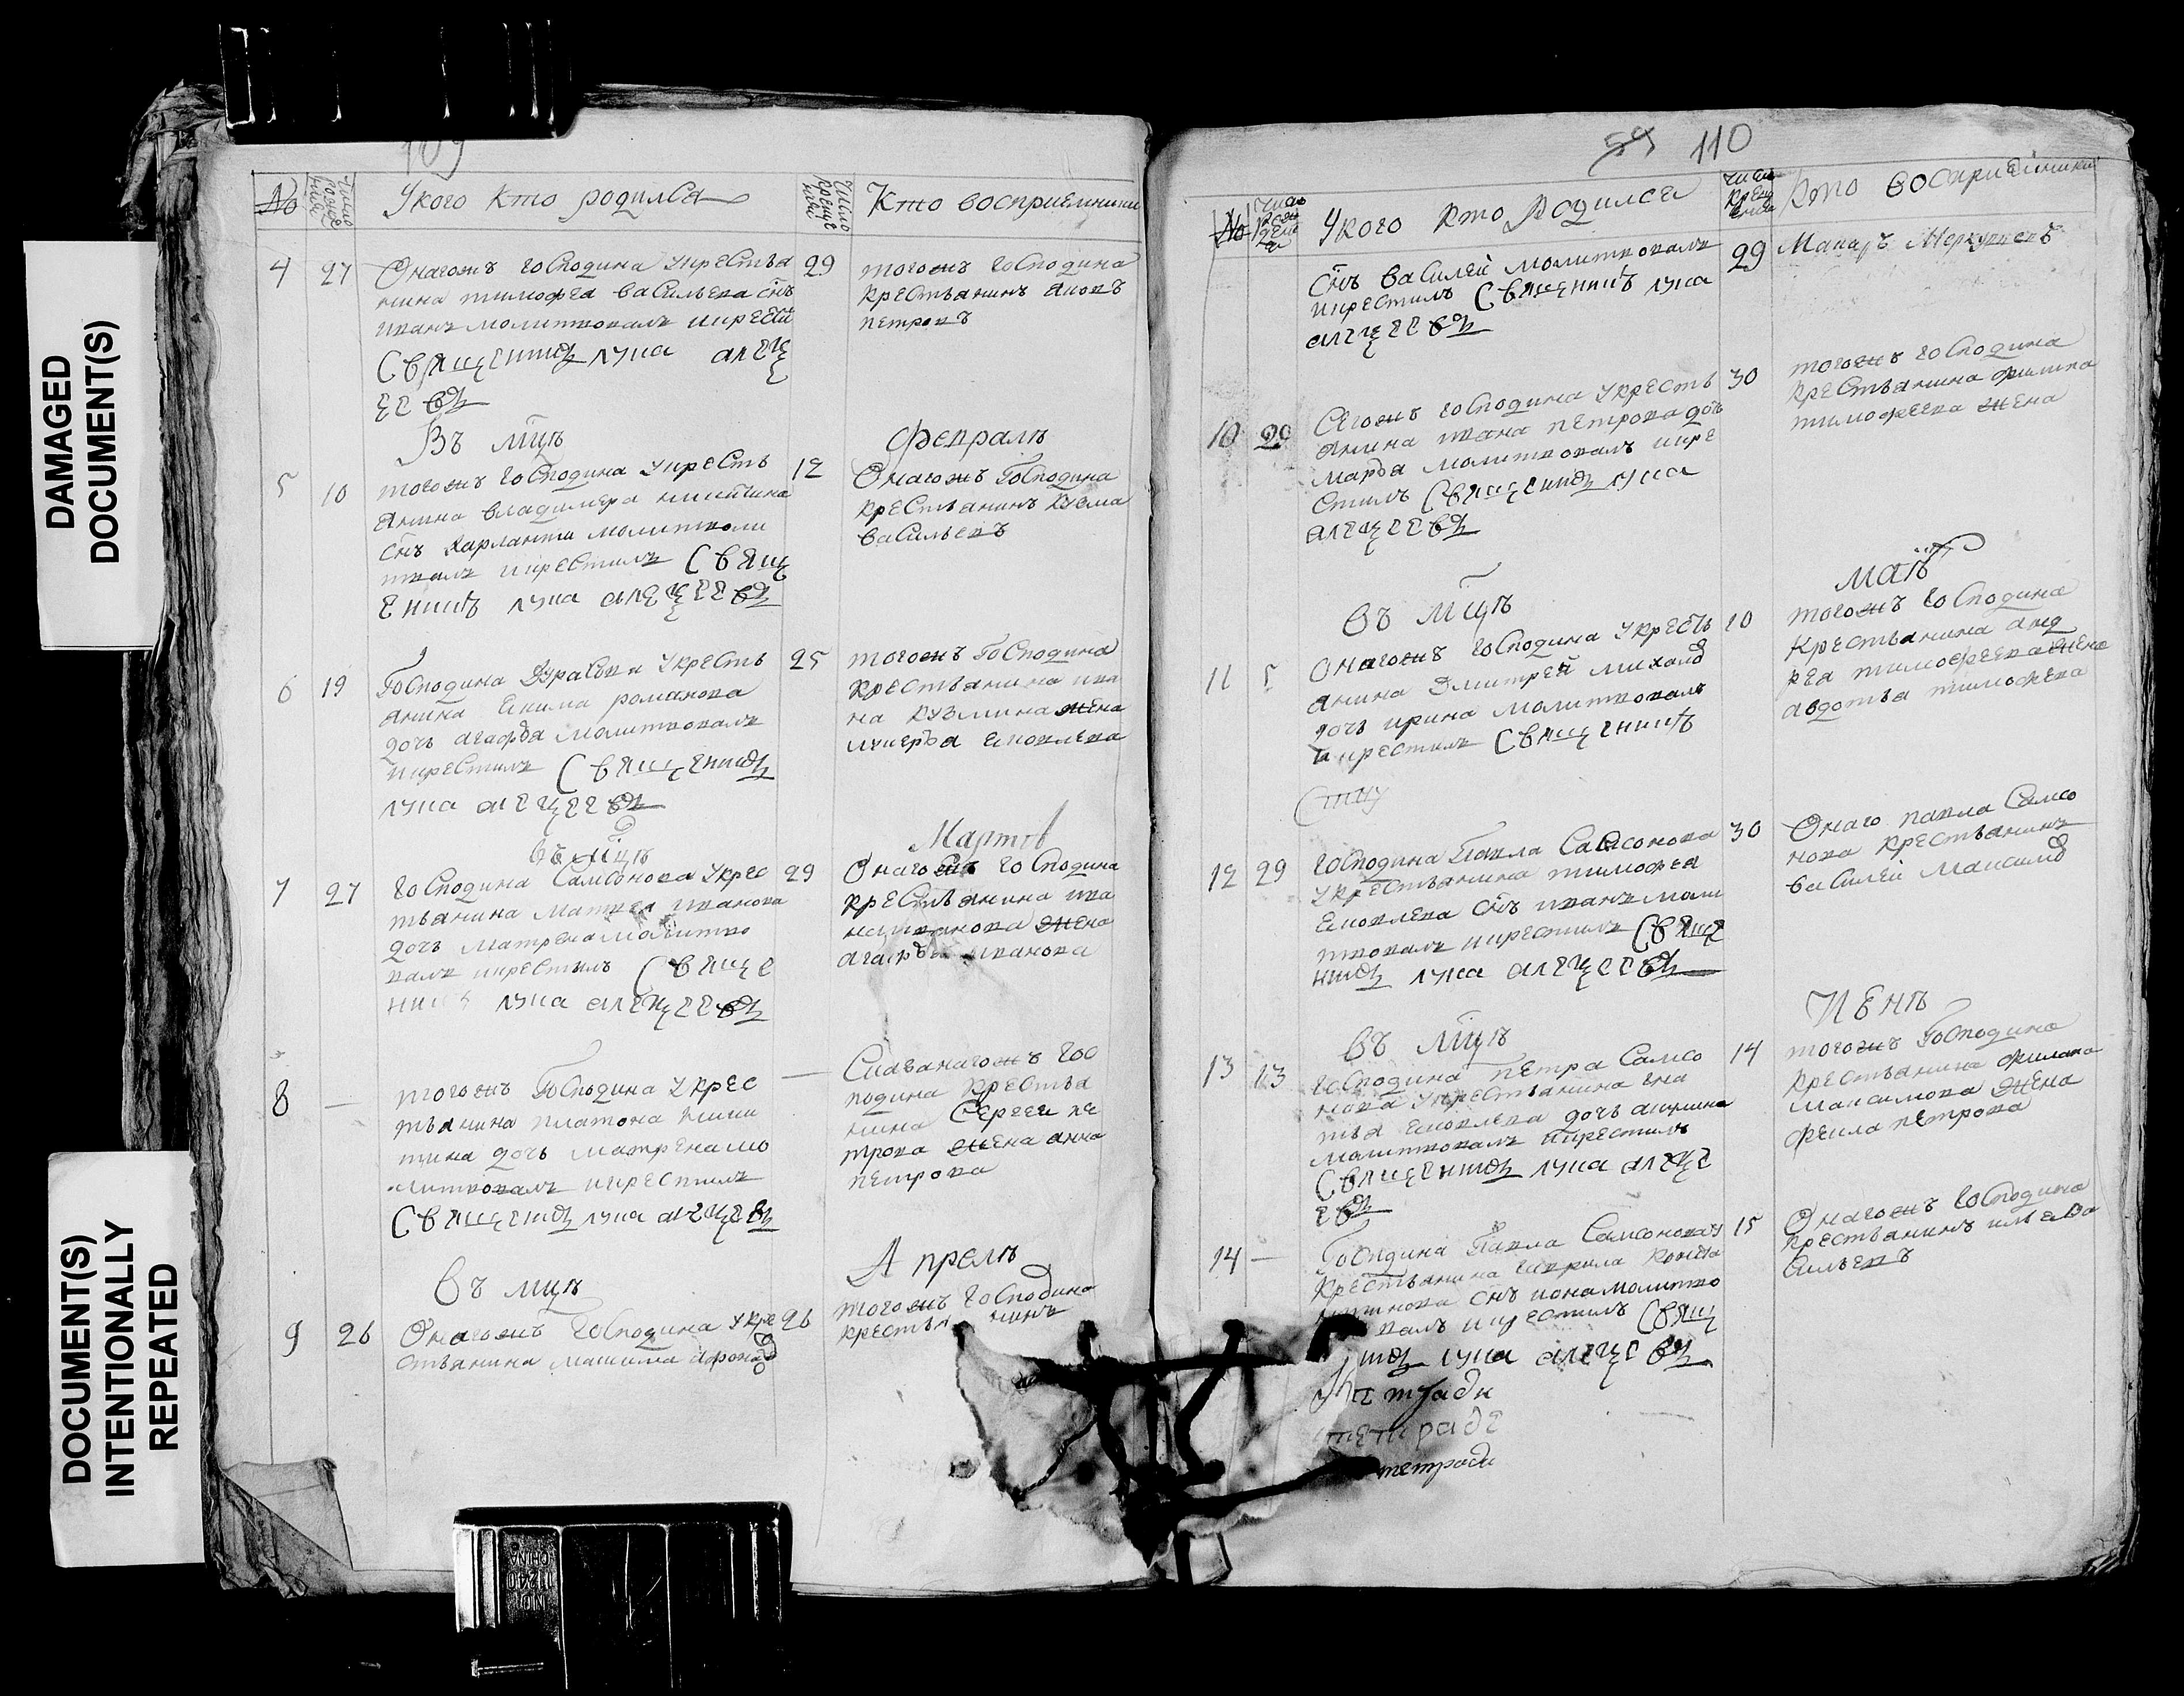 DAMAGED
DOCUMENT(S)
DOCUMENT(S)
INTENTIONALLY
REPEATED
109
№
Число рожде ния
Укого кто родился
Число креще ния
Кто восприемники
4 27 Онагожъ господина укрестья 29
нина тимофея васильева снъ
иванъ молитвовалъ икрести
Священникъ лука алеѯ
еевъ
тогожъ господина
крестьянинъ яковъ
петровъ
Въ мцѣ
февралѣ
5 10 тогожъ господина укресть 12
янина владимера никитина
снъ харлампи молитволи
твалъ икрестилъ Свящ
енникъ лука алеѯеевъ
Онагожъ Господина
крестьянинъ Кузма
васильевъ
6 19 Господина укресть 25
янина екима романова
дочь агафья молитвовалъ
икрестилъ Священникъ
лука алеѯеевъ
тогожъ Господина
крестьянина ива
на кузмина жена
лукерья яковлева
въ мцѣ
Мартѣ
7 27 господина Самсонова укрес 29
тьянина Матвея иванова
дочь матрена молитво
валъ икрестилъ Священ
никъ лука алеѯеевъ
Онагожъ господина
крестьянина ива
на иванова жена
агафья иванова
8 — тогожъ Господина укрес —
тьянина платона ники
тина дочь матрена мо
литвовалъ икрестилъ
Священникъ лука алеѯеевъ
гос
подина крестья
нина Сергея пе
трова жена анна
петрова
Въ мцѣ
Апрелѣ
9 26 Онагожъ Господина укре 26
стьянина макима афона
тогожъ господина
крестьянинъ
59 110
№
Число рожде ния
Укого Кто Родился
число креще ния
Кто восприемники
снъ василей молитвовалъ 29
икрестилъ Священникъ лука
алеѯеевъ
Макаръ Меркулаевъ
10 29 Сегожъ господина укресть 30
янина ивана петрова дочь
марья молитвовалъ икре
стилъ Священникъ лука
алеѯеевъ
тогожъ господина
крестьянина филипа
тимофеева жена
въ мцѣ
маѣ
11 5 Онагожъ господина укресть 10
янина Дмитрей михаило
дочь ирина молитвовалъ
икрестилъ Священникъ
тогожъ господина
крестьянина анд
рея тимофеева жена
авдотья тимофеева
12 29 господина Павла Самсонова 30
укрестьянина тимофея
яковлева снъ иванъ моли
твовалъ икрестилъ Свяще
нникъ лука алеѯеевъ
Онаго павла Самсо
нова крестьянинъ
василей Максимо
въ мцѣ
Июнѣ
13 13 господина петра Самсо 14
нова укрестьянина игна
тья яковлева дочь акулина
молитвовалъ икрестилъ
Священникъ лука алеѯе
евъ
тогожъ Господина
крестьянина филипа
Максимова жена
фекла петрова
14 — Господина Павла Самсонова у 15
крестьянина гаврила конста
нтинова снъ иона молитво
валъ икрестилъ Свящ
никъ лука алеѯеевъ
Онагожъ господина
крестьянинъ илья Ва
сильевъ
тетради
тетраде
тетради